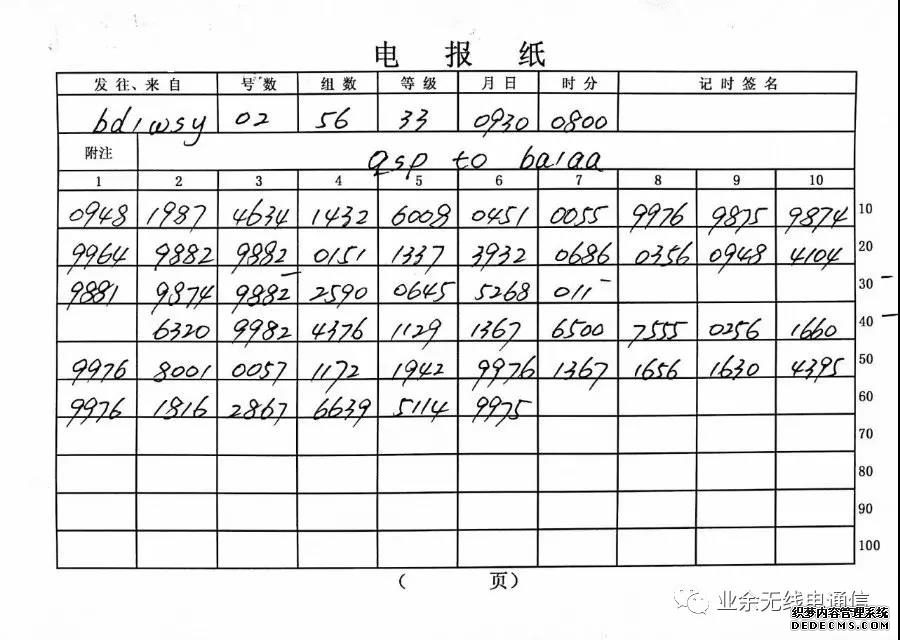 电 报 纸
发 往、来 自 号 数 组 数 等 级 月 日 时 分 记 时 签 名
bd1wsy 02 56 33 0930 0800
附注 qsp to ba1aa
1 2 3 4 5 6 7 8 9 10
0948 1987 4634 1432 6008 0451 0055 9976 9875 9874 10
9964 9882 9882 0151 1337 3932 0686 0356 0948 4104 20
9881 9874 9882 2590 0645 5268 011 30
6320 9982 4376 1129 1367 6500 7555 0256 1660 40
9976 8001 0057 1172 1942 9976 1367 1656 1630 4395 50
9976 1816 2867 6639 5114 9975 60
70
80
90
100
( 页)
业余无线电通信
织梦内容管理系统
DEDECMS.COM